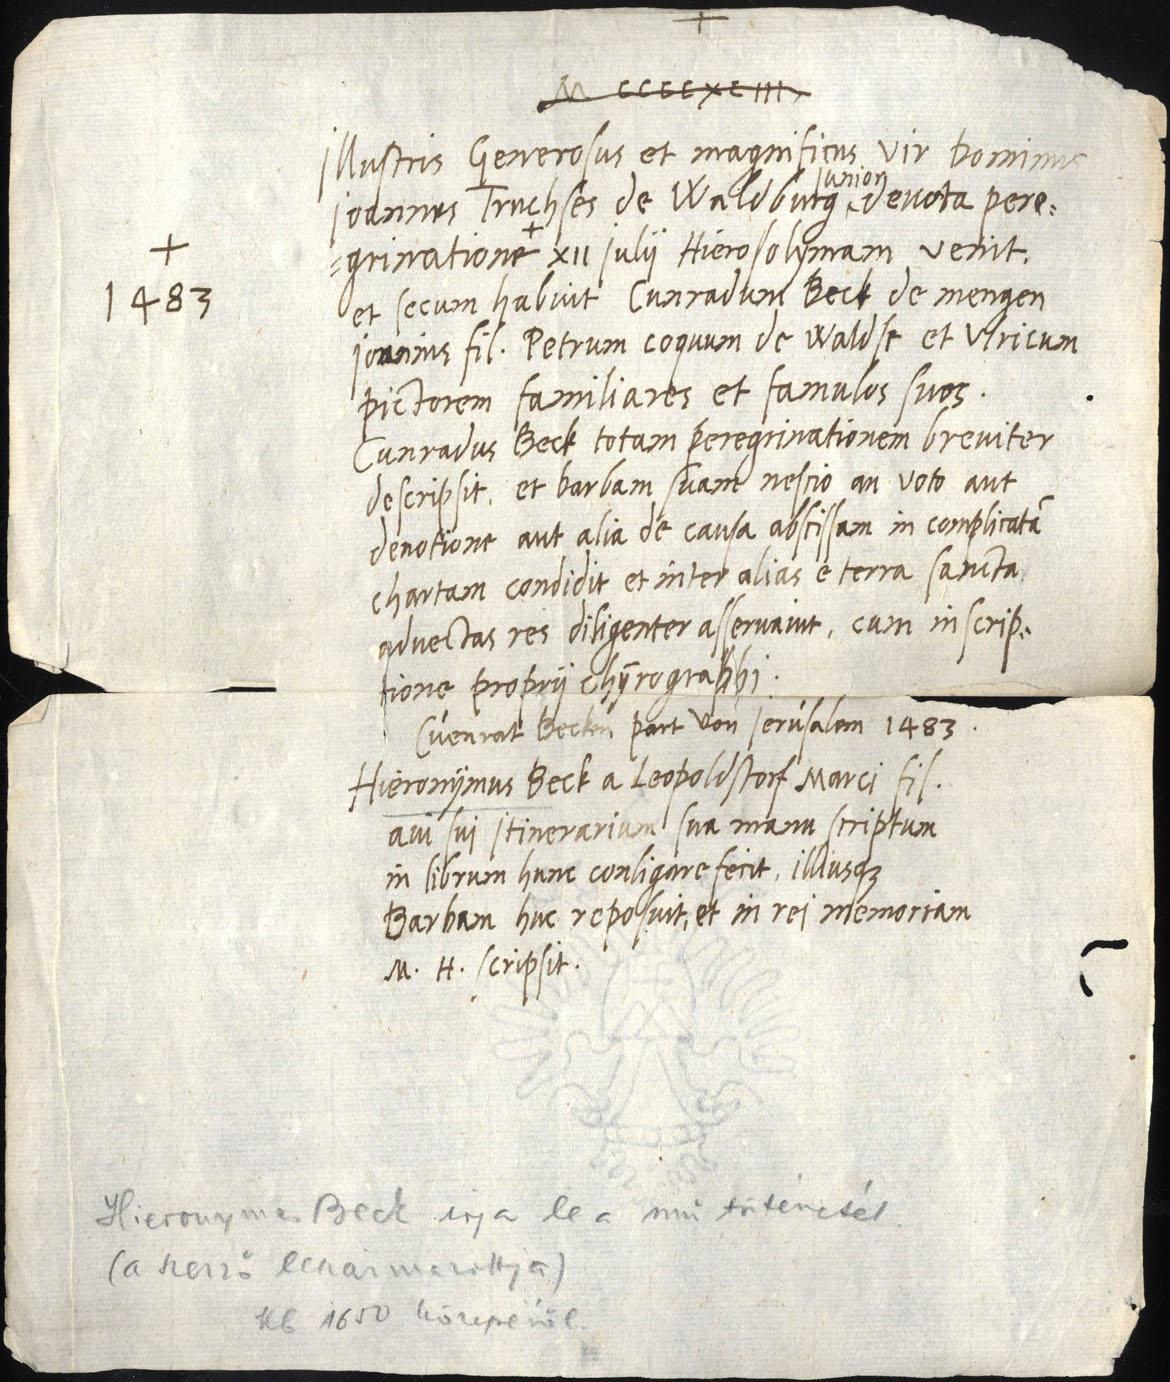 M CCCCXCIII
Illustris Generosus et magnificus vir Dominus
Joannes Truchses de Waldburg junior devota pere=
=grinatione + XII Julij Hierosolymam venit,
+
1483
et secum habuit Cunradum Beck de mengen
Joannis fil. Petrum coquum de Waldse et Vlricum
pictorem familiares et famulos suos.
Cunradus Beck totam peregrinationem breuiter
descripsit, et barbam suam nescio an voto aut
deuotione aut alia de causa abscissam in complicatã
chartam condidit et inter alias e terra sancta
aduectas res diligenter asseruauit, cum inscrip=
tione proprij chÿrographi.
Cuenrat Becken part von Jerusalem 1483.
Hieronÿmus Beck a Leopoldstorf Marci fil.
aui sui itinerarium sua manu scriptum
in librum hunc conligare fecit, illiusq3
Barbam huc reposuit, et in rei memoriam
M. H. scripsit.
Hieronymus Beck irja le a mű történetét.
(a szerző leszármazottja)
kb 1650 közepéről.